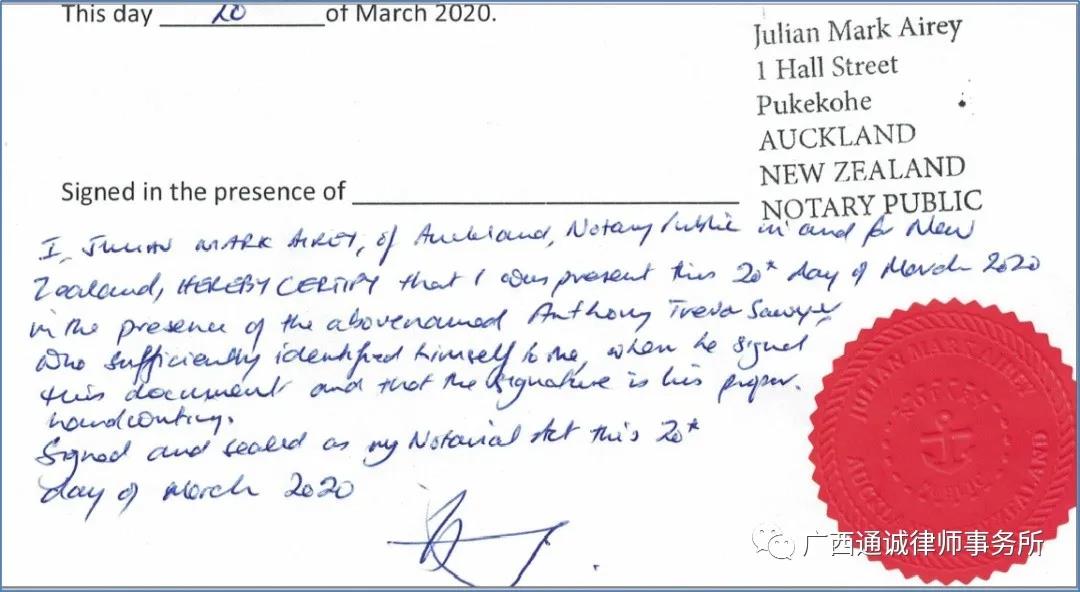 This day 20 of March 2020.
Julian Mark Airey
1 Hall Street
Pukekohe
AUCKLAND
NEW ZEALAND
NOTARY PUBLIC
Signed in the presence of
I, JULIAN MARK AIREY, of Auckland, Notary Public in and for New
Zealand, HEREBY CERTIFY that I was present this 20th day of March 2020
in the presence of the abovenamed Anthony Trevor Sawyer,
who sufficiently identified himself to me, when he signed
this document and that the signature is his proper
handwriting.
Signed and sealed as my Notarial Act this 20th
day of March 2020
JULIAN MARK AIREY
NOTARY
PUBLIC
AUCKLAND NEW ZEALAND
广西通诚律师事务所